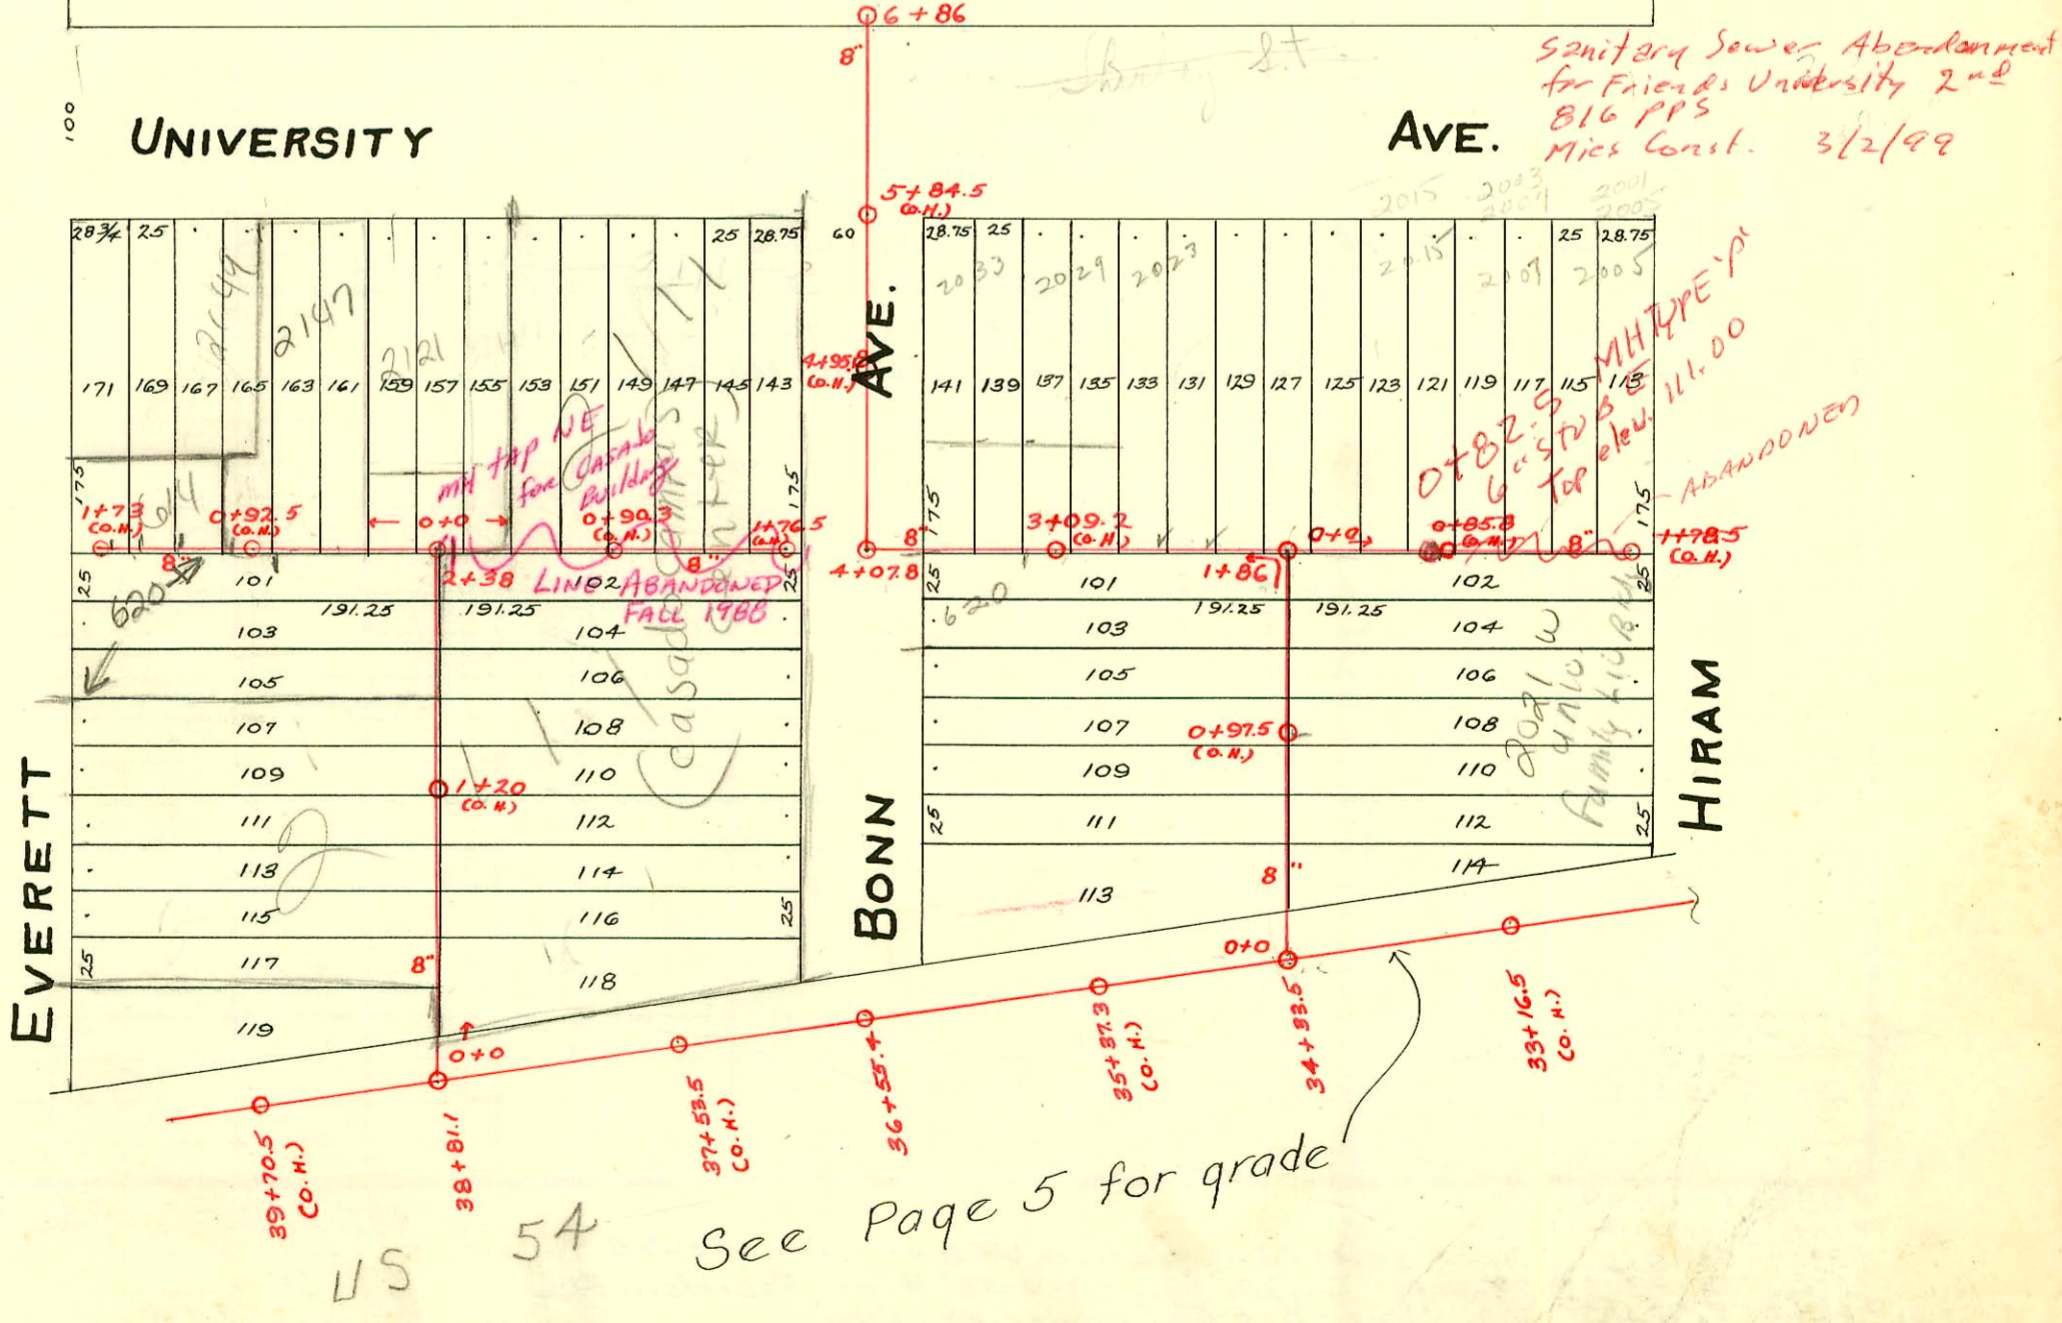 6 + 86
8"
Sanitary Sewer Abandonment
for Friends University 2nd
816 PPS
Mies Const. 3/2/99
100
UNIVERSITY
AVE.
S.t.
5+84.5
(O.H.)
2015 2003 2001
2007 2005
28 3/4 25 25 28.75
60
28.75 25 25 28.75
2149
2147
2121
2033 2029 2023 2015 2007 2005
4+95.8
(O.H.)
171 169 167 165 163 161 159 157 155 153 151 149 147 145 143
141 139 137 135 133 131 129 127 125 123 121 119 117 115 113
MH TYPE 'P'
0+82.5
6" STUB E
Top elev. 111.00
ABANDONED
MH TAP NE
for CASADO
Building
175 175 175 175
614
1+73
(O.H.)
0+92.5
(O.H.)
0+0
0+90.3
(O.H.)
1+76.5
(O.H.)
8"
3+09.2
(O.H.)
0+0
0+85.8
(O.H.)
8"
1+78.5
(O.H.)
8"
2+38
8"
4+07.8
1+86
LINE ABANDONED
FALL 1988
620
620
25 101 102 25
191.25 191.25
103 104
105 106
107 108
109 110
111 112
113 114
115 116 25
25 117 118
119
1+20
(O.H.)
8"
0+0
Casado Campus
Center
25 101 102 25
191.25 191.25
103 104
105 106
107 108
109 110
25 111 112 25
113 114
0+97.5
(O.H.)
8"
0+0
2021 W
Univ.
Family Liv Bldg
EVERETT
BONN
AVE.
HIRAM
39+70.5
(O.H.)
38+81.1
37+53.5
(O.H.)
36+55.4
35+37.3
(O.H.)
34+33.5
33+16.5
(O.H.)
See Page 5 for grade
US 54